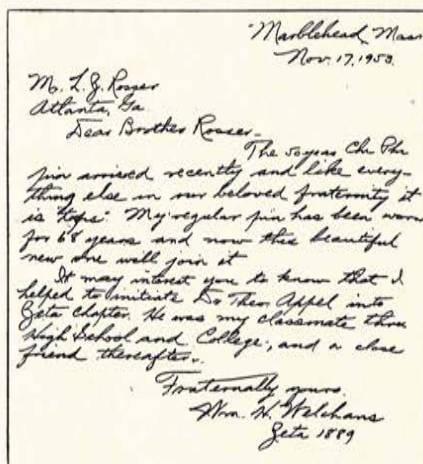 Marblehead, Mass
Nov. 17, 1953.
Mr. L. Z. Rosser
Atlanta, Ga
Dear Brother Rosser -
The 50 year Chi Phi
pin arrived recently and like every-
thing else in our beloved fraternity it
is "tops". My regular pin has been worn
for 68 years and now this beautiful
new one will join it
It may interest you to know that I
helped to initiate Dr Theo. Appel into
Zeta chapter. He was my classmate thru
High School and College, and a close
friend thereafter.
Fraternally yours.
Wm. H. Welchans
Zeta 1889